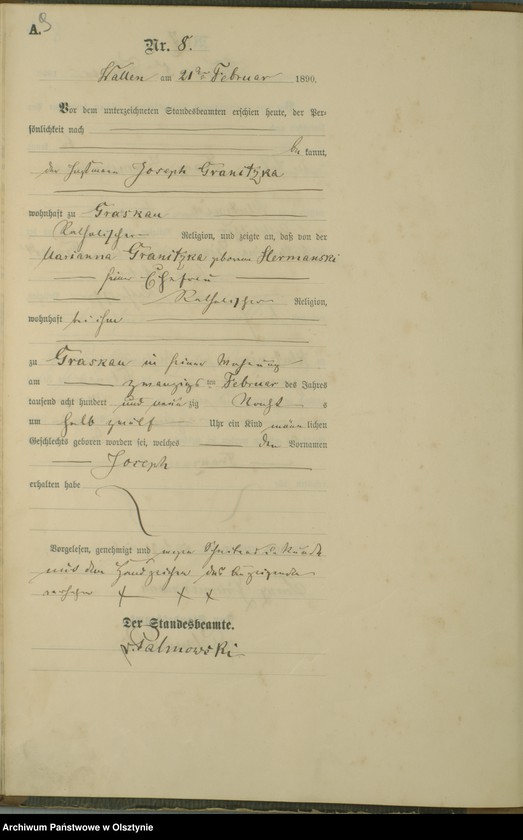 A.
Nr. 8.
Wallen am 21ten Februar 1890.
Vor dem unterzeichneten Standesbeamten erschien heute, der Per-
sönlichkeit nach
be kannt,
der Joseph Granitzka
wohnhaft zu Graskau
Katholischer Religion, und zeigte an, daß von der
Marianna Granitzka geborenen Hermanski
seiner Ehefrau
Katholischer Religion,
wohnhaft bei ihm
zu Graskau in seiner Wohnung
am zwanzigsten Februar des Jahres
tausend acht hundert und neun zig Nachts
um halb zwölf Uhr ein Kind männ lichen
Geschlechts geboren worden sei, welches den Vornamen
Joseph
erhalten habe
Vorgelesen, genehmigt und wegen Schreibensunkunde
mit dem Handzeichen des Anzeigenden
versehen + + +
Der Standesbeamte.
v. Palmowski
Archiwum Państwowe w Olsztynie